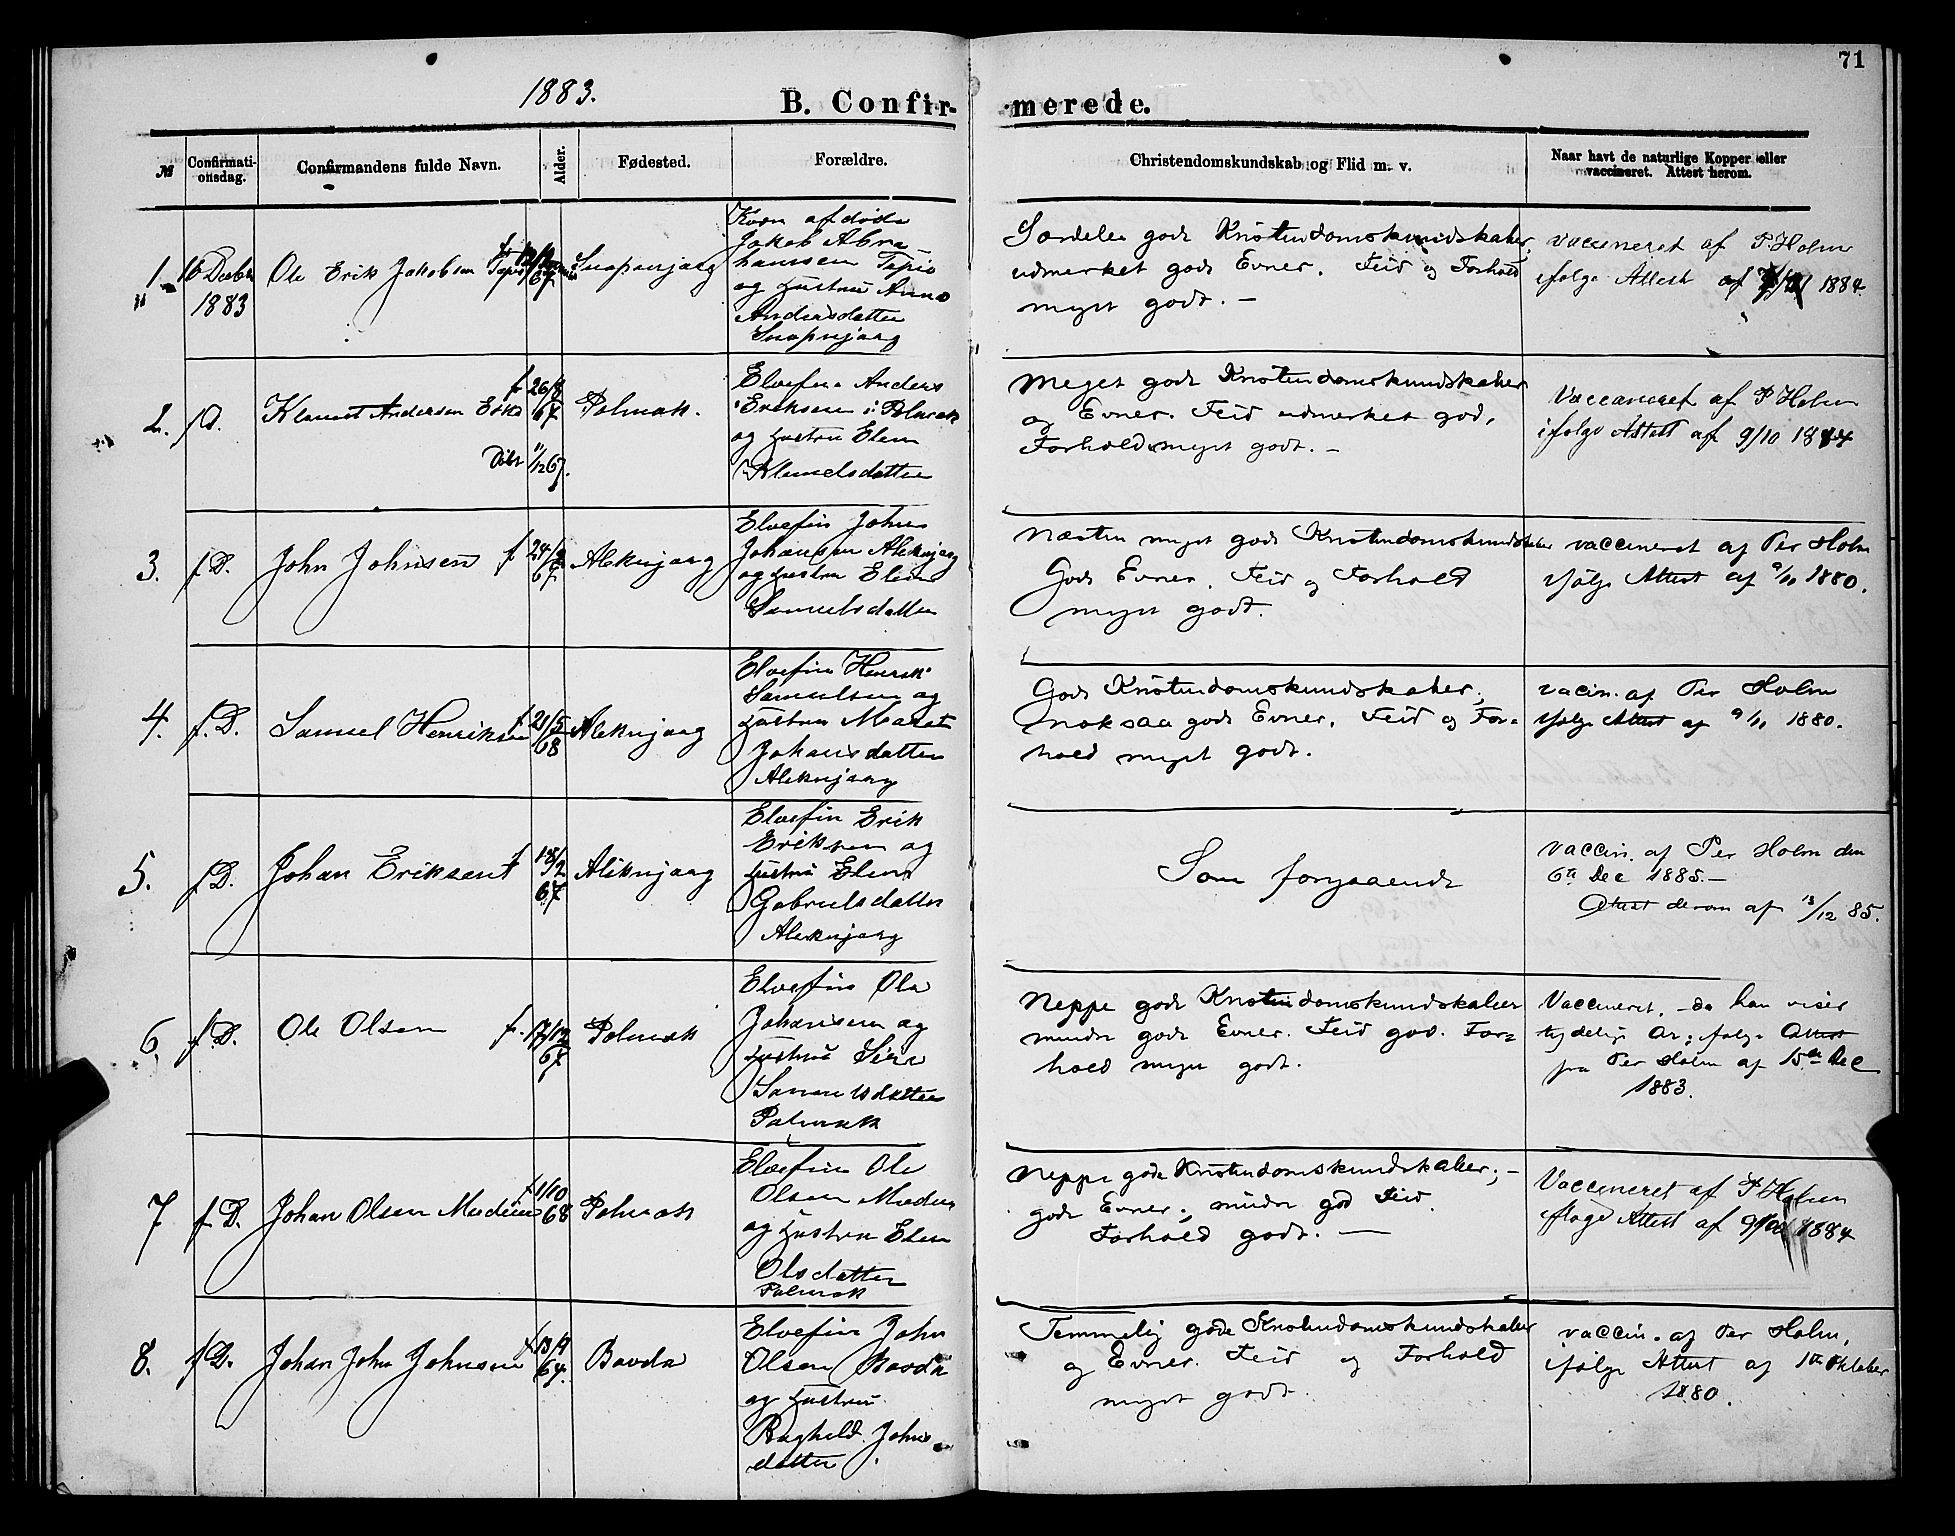 71
1883.
B. Confir- merede.
№
Confirmati-
onsdag.
Confirmandens fulde Navn.
Alder.
Fødested.
Forældre.
Christendomskundskab og Flid m. v.
Naar havt de naturlige Kopper eller
vaccineret. Attest herom.
1.
16 Decbr
1883
Ole Erik Jakobsen
67
Kvæn afdøde
Jakob Abra-
hamsen Tapio
og Hustru Anna
Andersdatter
Særdeles gode Kristendomskundskaber,
udmerket gode Evner. Flid og Forhold
meget godt. -
vaccineret af P. Holm
ifølge Attest af 1884.
2.
f D.
Klemet Andersen
f 26/8
67
Døbt 1/12 67.
Polmak.
Elvefin Anders
Eriksen i Polmak
og Hustru Elen
Klemetsdatter
Meget gode Kristendomskundskaber
og Evner. Flid udmerket god,
Forhold meget godt. -
Vaccineret af P Holm
ifølge Attest af 9/10 1884
3.
f. D.
John Johnsen
f 24/9
67
Aleknjarg
Elvefin John
Johansen Aleknjarg
og Hustru Elen
Samuelsdatter
Næsten meget gode Kristendomskundskaber
Gode Evner. Flid og Forhold
meget godt.
vaccineret af Per Holm
ifølge Attest af 9/11 1880.
4.
f. D.
Samuel Henriksen
f. 21/5
68
Aleknjarg
Elvefin Henrik
Samuelsen og
Hustru Marit
Johansdatter
Aleknjarg
Gode Kristendomskundskaber;
nok saa gode Evner. Flid og For-
hold meget godt.
vacin. af Per Holm
ifølge Attest af 9/11 1880.
5.
f D.
Johan Eriksen
f 18/2
67
Aleknjarg
Elvefin Erik
Eriksen og
Hustru Elen
Gabrielsdatter
Aleknjarg
Som foregaaende
Vaccin. af Per Holm den
6te Dec 1885.-
Attest derom af 13/12 85.
6.
f. D.
Ole Olsen
f. 17/12
67
Polmak
Elvefin Ole
Johansen og
Hustru Siri
Samuelsdatter
Polmak
Neppe gode Kristendomskundskaber
mindre gode Evner. Flid god. For-
hold meget godt.
Vaccineret, - da han viser
tydelig Ar; ifølge Attest
fra Per Holm af 15de Dec
1883.
7
f. D.
Johan Olsen Mudenes
f 1/10
68
Polmak
Elvefin Ole
Olsen Mudenes
og Hustru Elen
Olsdatter
Polmak
Neppe gode Kristendomskundskaber; -
gode Evner; mindre god Flid.
Forhold godt. -
Vaccineret af P Holm
ifølge Attest af 9/10 1884
8.
f D.
Johan John Johnsen
f 13/4
67.
Bavda
Elvefin John
Olsen Bavda
og Hustru
Raghild Johns-
datter.
Temmelig gode Kristendomskundskaber
og Evner. Flid og Forhold
meget godt.
vaccin. af Per Holm,
ifølge Attest af 1ste Oktober
1880.